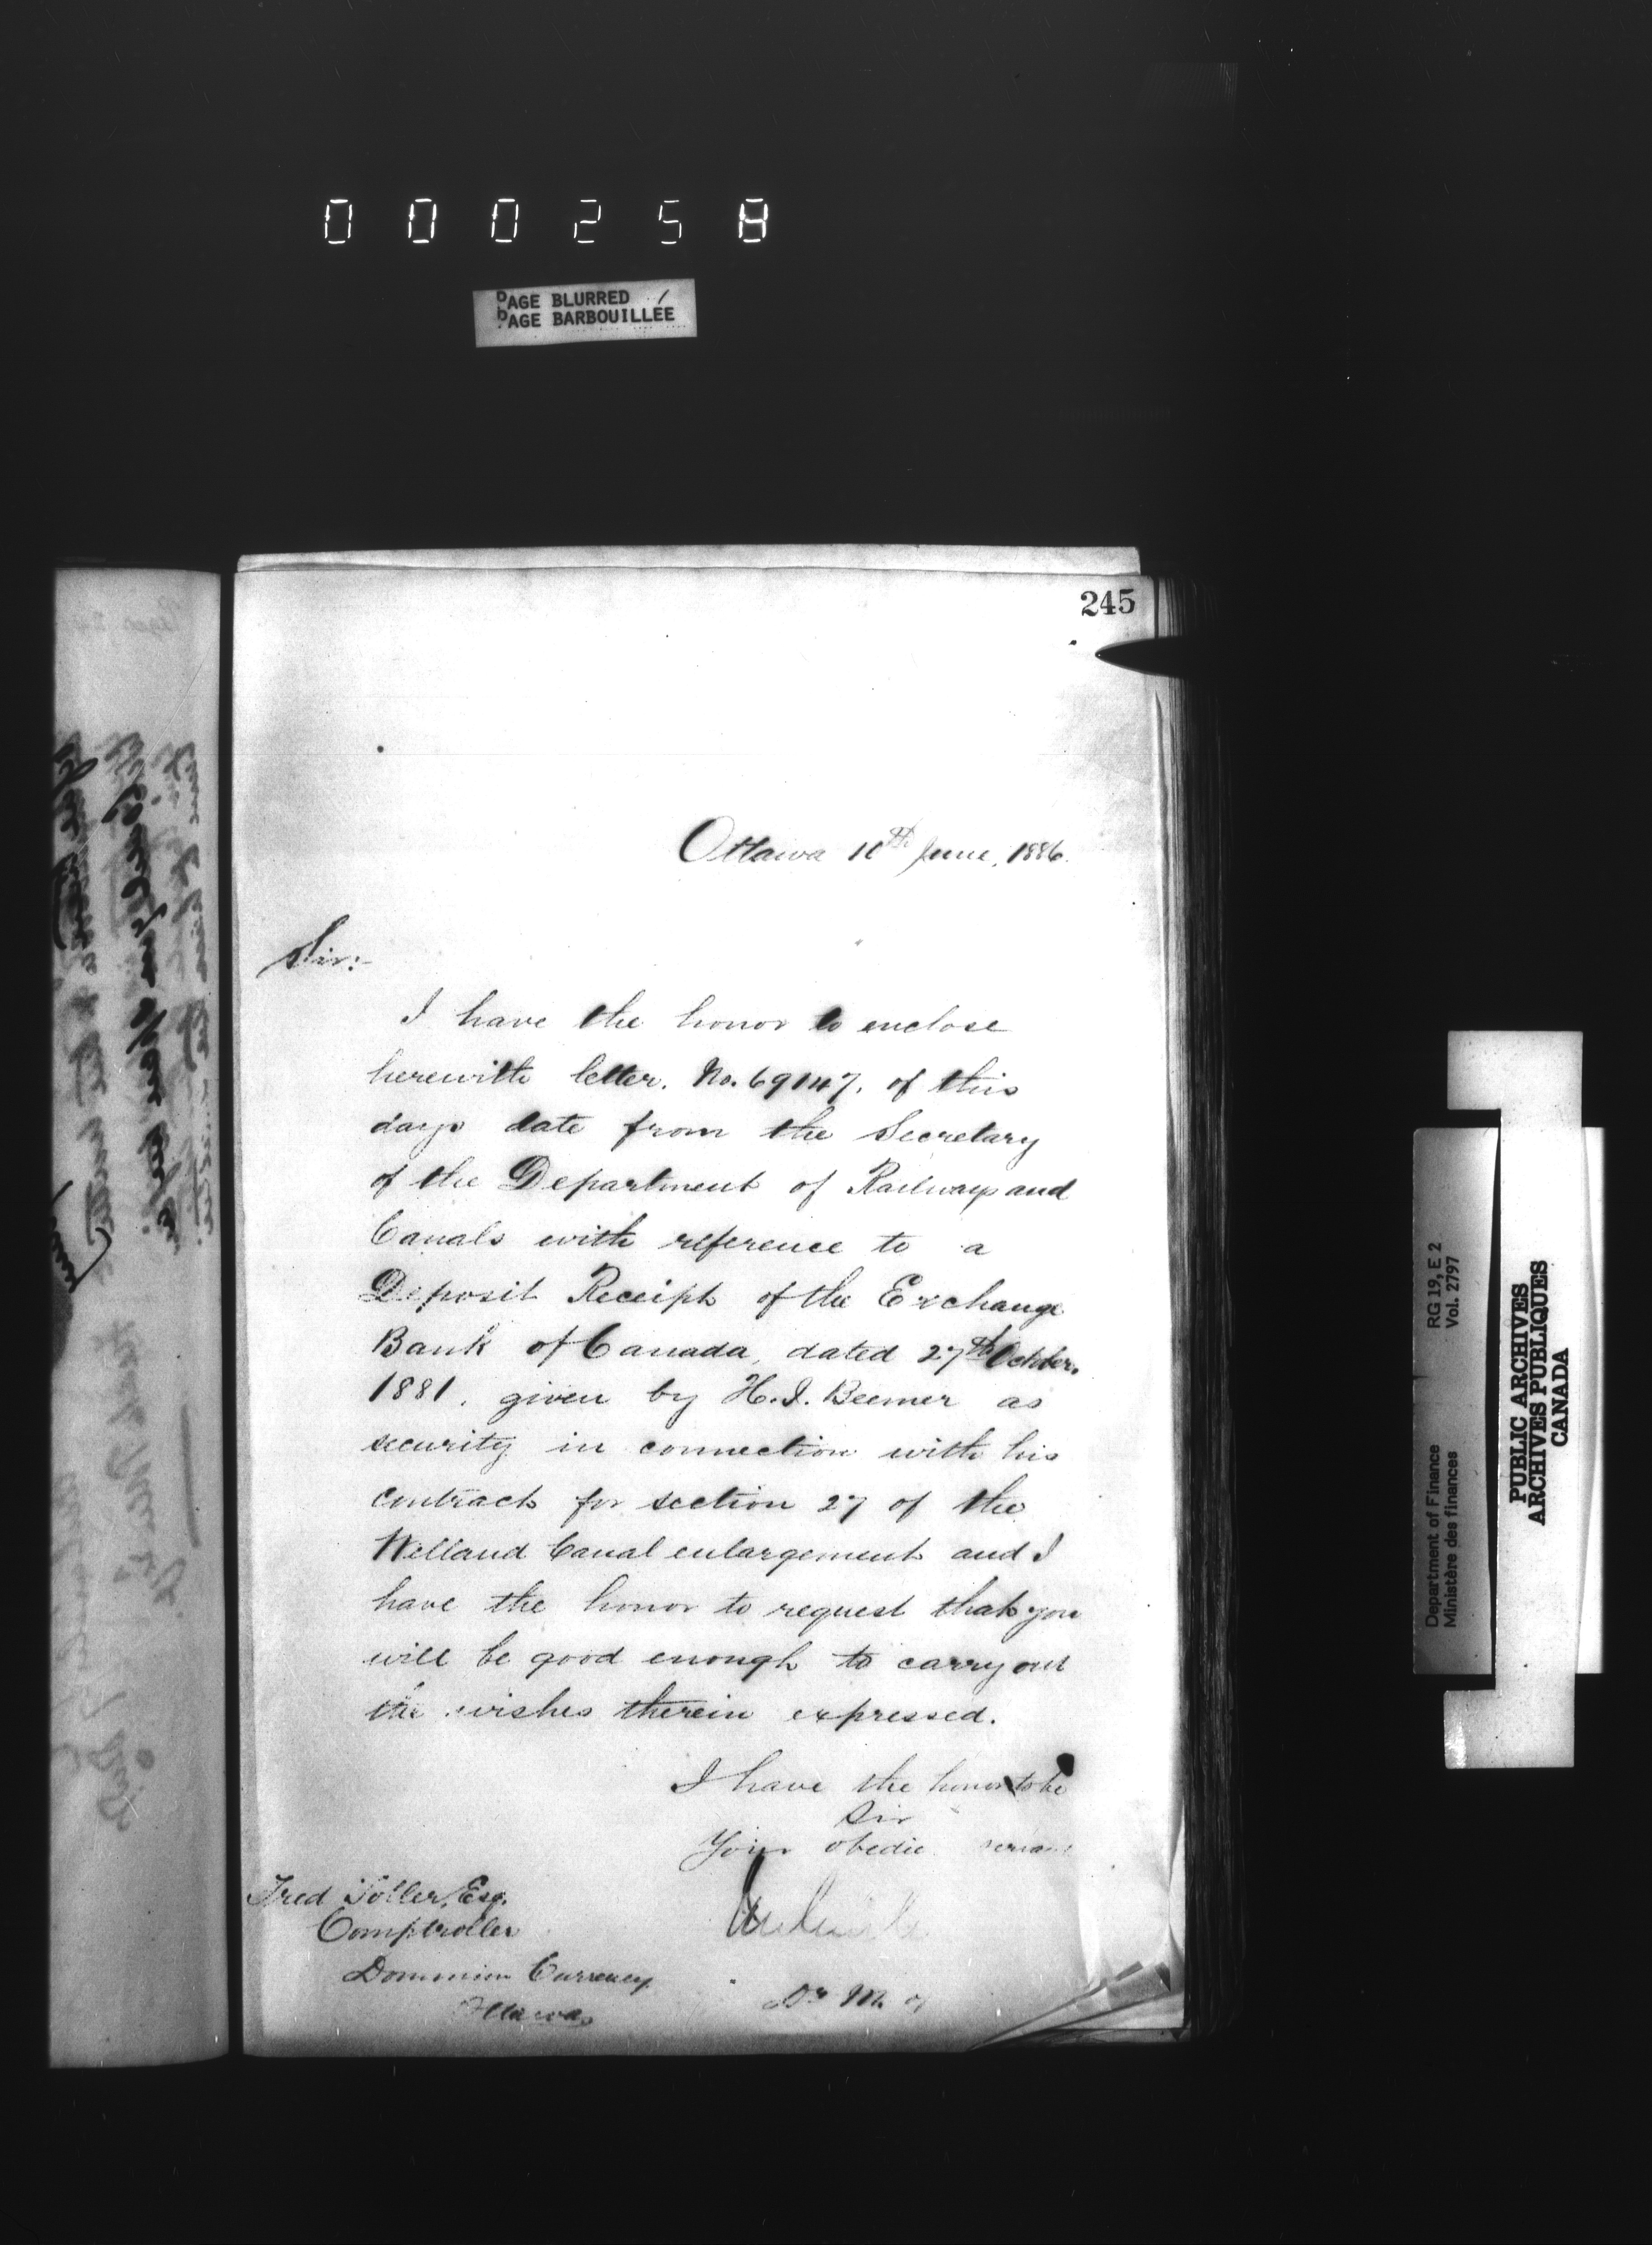 000258
PAGE BLURRED
PAGE BARBOUILLÉE
245
Ottawa 10th June, 1886.
Sir:-
I have the honor to enclose
herewith letter. No. 69147. of this
days date from the Secretary
of the Department of Railways and
Canals with reference to a
Deposit Receipt of the Exchange
Bank of Canada, dated 27th October.
1881. given by H.J. Beemer as
security in connection with his
contract for section 27 of the
Welland Canal enlargement and I
have the honor to request that you
will be good enough to carry out
the wishes therein expressed.
I have the honor to be
Sir
Your obedie servan
Fred Toller, Esq.
Comptroller
Dominion Currency
Ottawa
D. M. of
Department of Finance RG 19, E 2
Ministère des finances Vol. 2797
PUBLIC ARCHIVES
ARCHIVES PUBLIQUES
CANADA